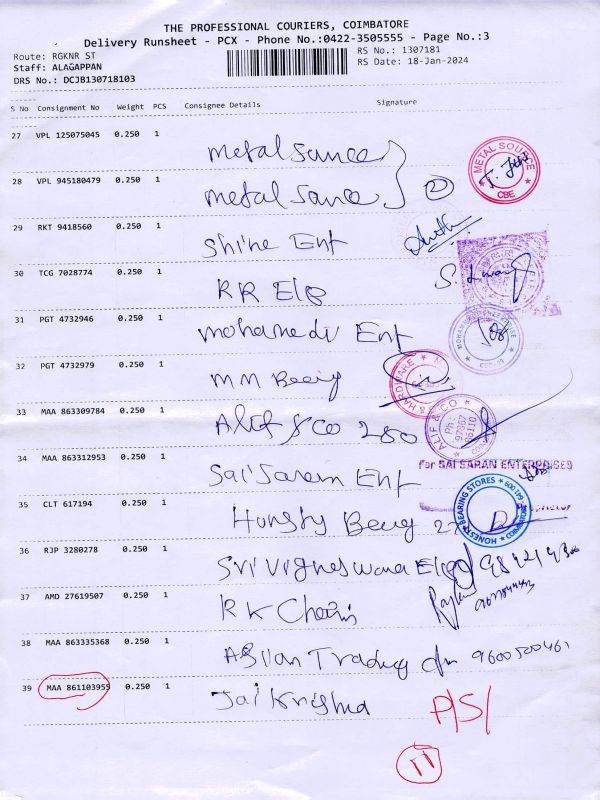 THE PROFESSIONAL COURIERS, COIMBATORE
Delivery Runsheet - PCX - Phone No.:0422-3505555 - Page No.:3
Route: RGKNR ST
RS No.: 1307181
Staff: ALAGAPPAN
RS Date: 18-Jan-2024
DRS No.: DCJB130718103
S No Consignment No Weight PCS Consignee Details Signature
27 VPL 125075045 0.250 1 metal Source
28 VPL 945180479 0.250 1 metal Source 2
METAL SOURCE CBE
29 RKT 9418560 0.250 1 Shine Ent
30 TCG 7028774 0.250 1 RR Ele
31 PGT 4732946 0.250 1 mohamedi Ent
32 PGT 4732979 0.250 1 MM Beeig
& HARDWARE
33 MAA 863309784 0.250 1 Alif & Co 280
ALIF & CO
34 MAA 863312953 0.250 1 Sai Saran Ent
For SAI SARAN ENTERPRISES
35 CLT 617194 0.250 1 Honsty Beeig
HONEST BEARING STORES COIMBATORE
36 RJP 3280278 0.250 1 Sri Vigneswara
37 AMD 27619507 0.250 1 RK Chains
38 MAA 863335368 0.250 1 Asian Trading 9600500461
39 MAA 861103955 0.250 1 Jai Krishna P/S/
11